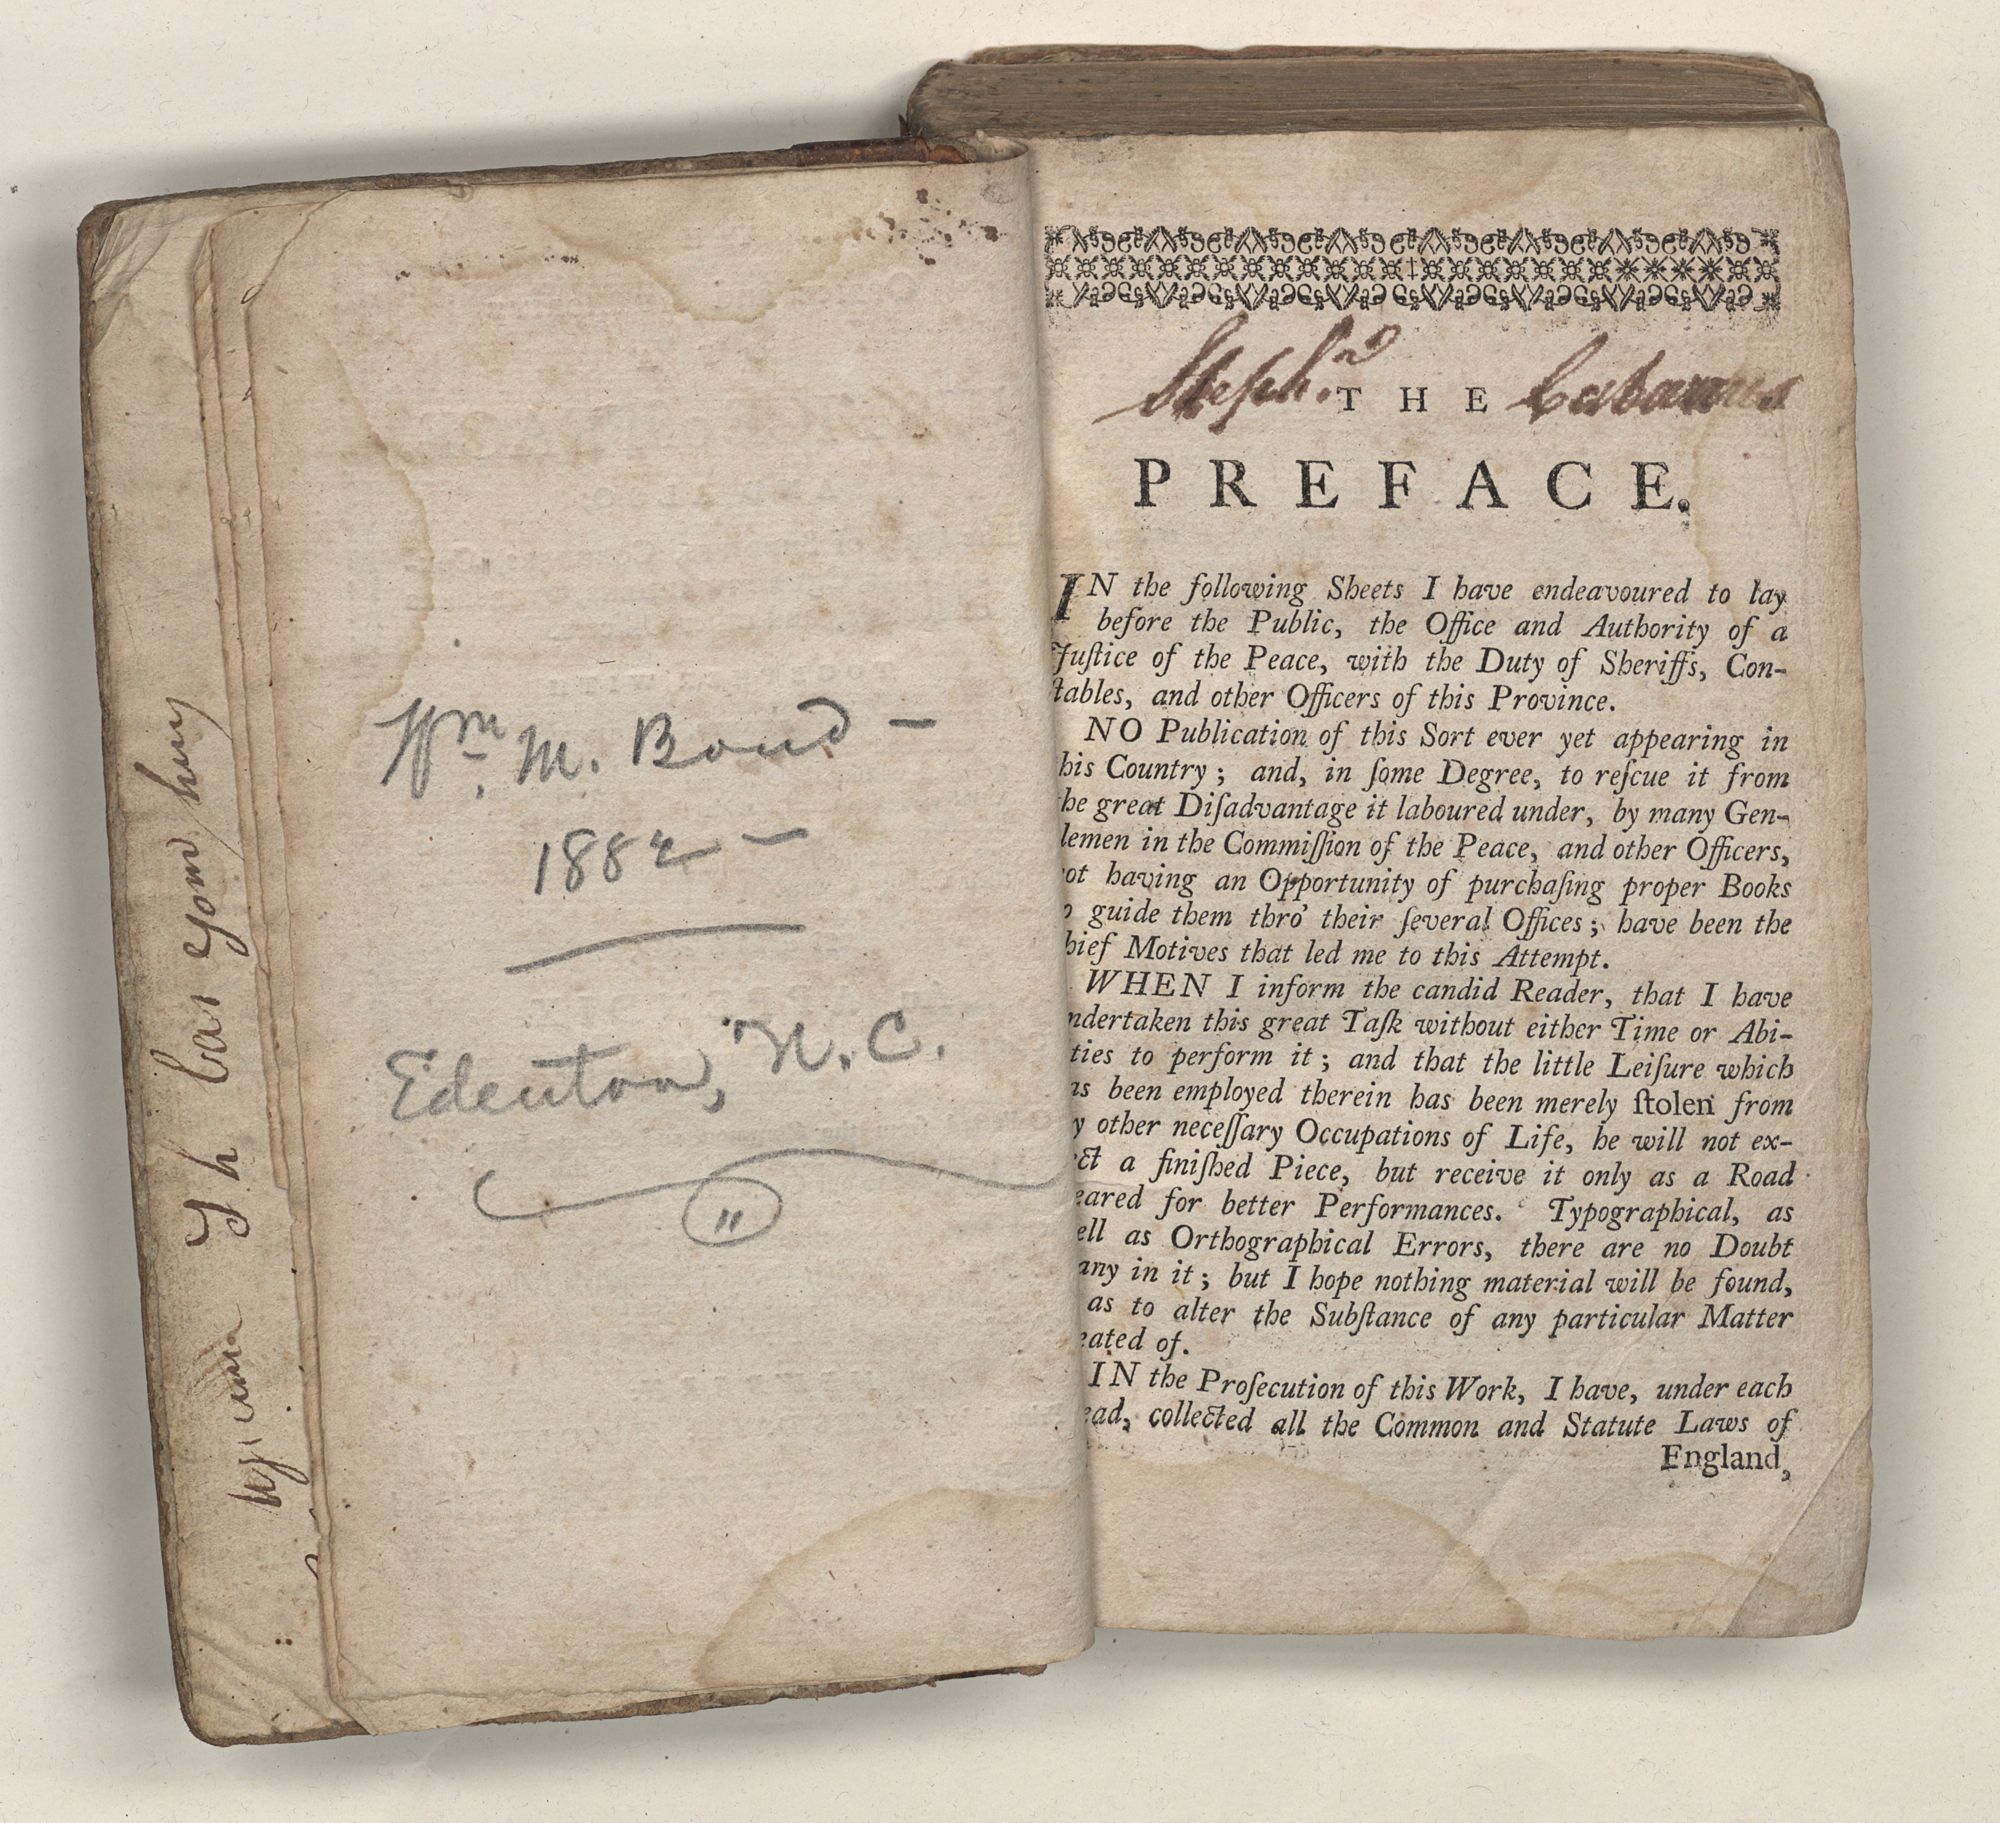 Wm. M. Bond –
1882 –
Edenton, N. C.
"
Steph.n Cabarrus
THE
PREFACE.
IN the following Sheets I have endeavoured to lay
before the Public, the Office and Authority of a
Juſtice of the Peace, with the Duty of Sheriffs, Con-
ſtables, and other Officers of this Province.
NO Publication of this Sort ever yet appearing in
his Country; and, in ſome Degree, to reſcue it from
he great Diſadvantage it laboured under, by many Gen-
lemen in the Commiſſion of the Peace, and other Officers,
ot having an Opportunity of purchaſing proper Books
o guide them thro' their ſeveral Offices; have been the
hief Motives that led me to this Attempt.
WHEN I inform the candid Reader, that I have
ndertaken this great Taſk without either Time or Abi-
ties to perform it; and that the little Leiſure which
as been employed therein has been merely ſtolen from
y other neceſſary Occupations of Life, he will not ex-
ect a finiſhed Piece, but receive it only as a Road
eared for better Performances. Typographical, as
ell as Orthographical Errors, there are no Doubt
any in it; but I hope nothing material will be found,
as to alter the Subſtance of any particular Matter
eated of.
IN the Proſecution of this Work, I have, under each
ead, collected all the Common and Statute Laws of
England,